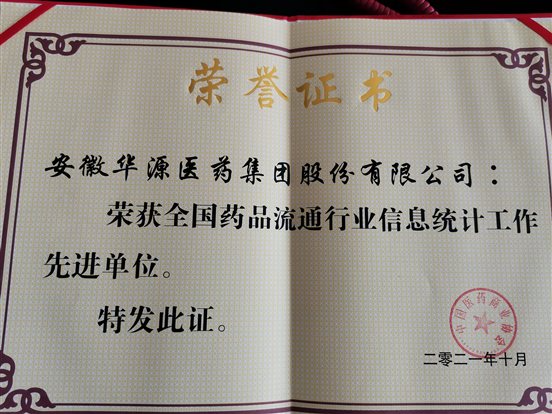 荣誉证书
安徽华源医药集团股份有限公司：
荣获全国药品流通行业信息统计工作
先进单位。
特发此证。
中国医药商业协会
二零二一年十月